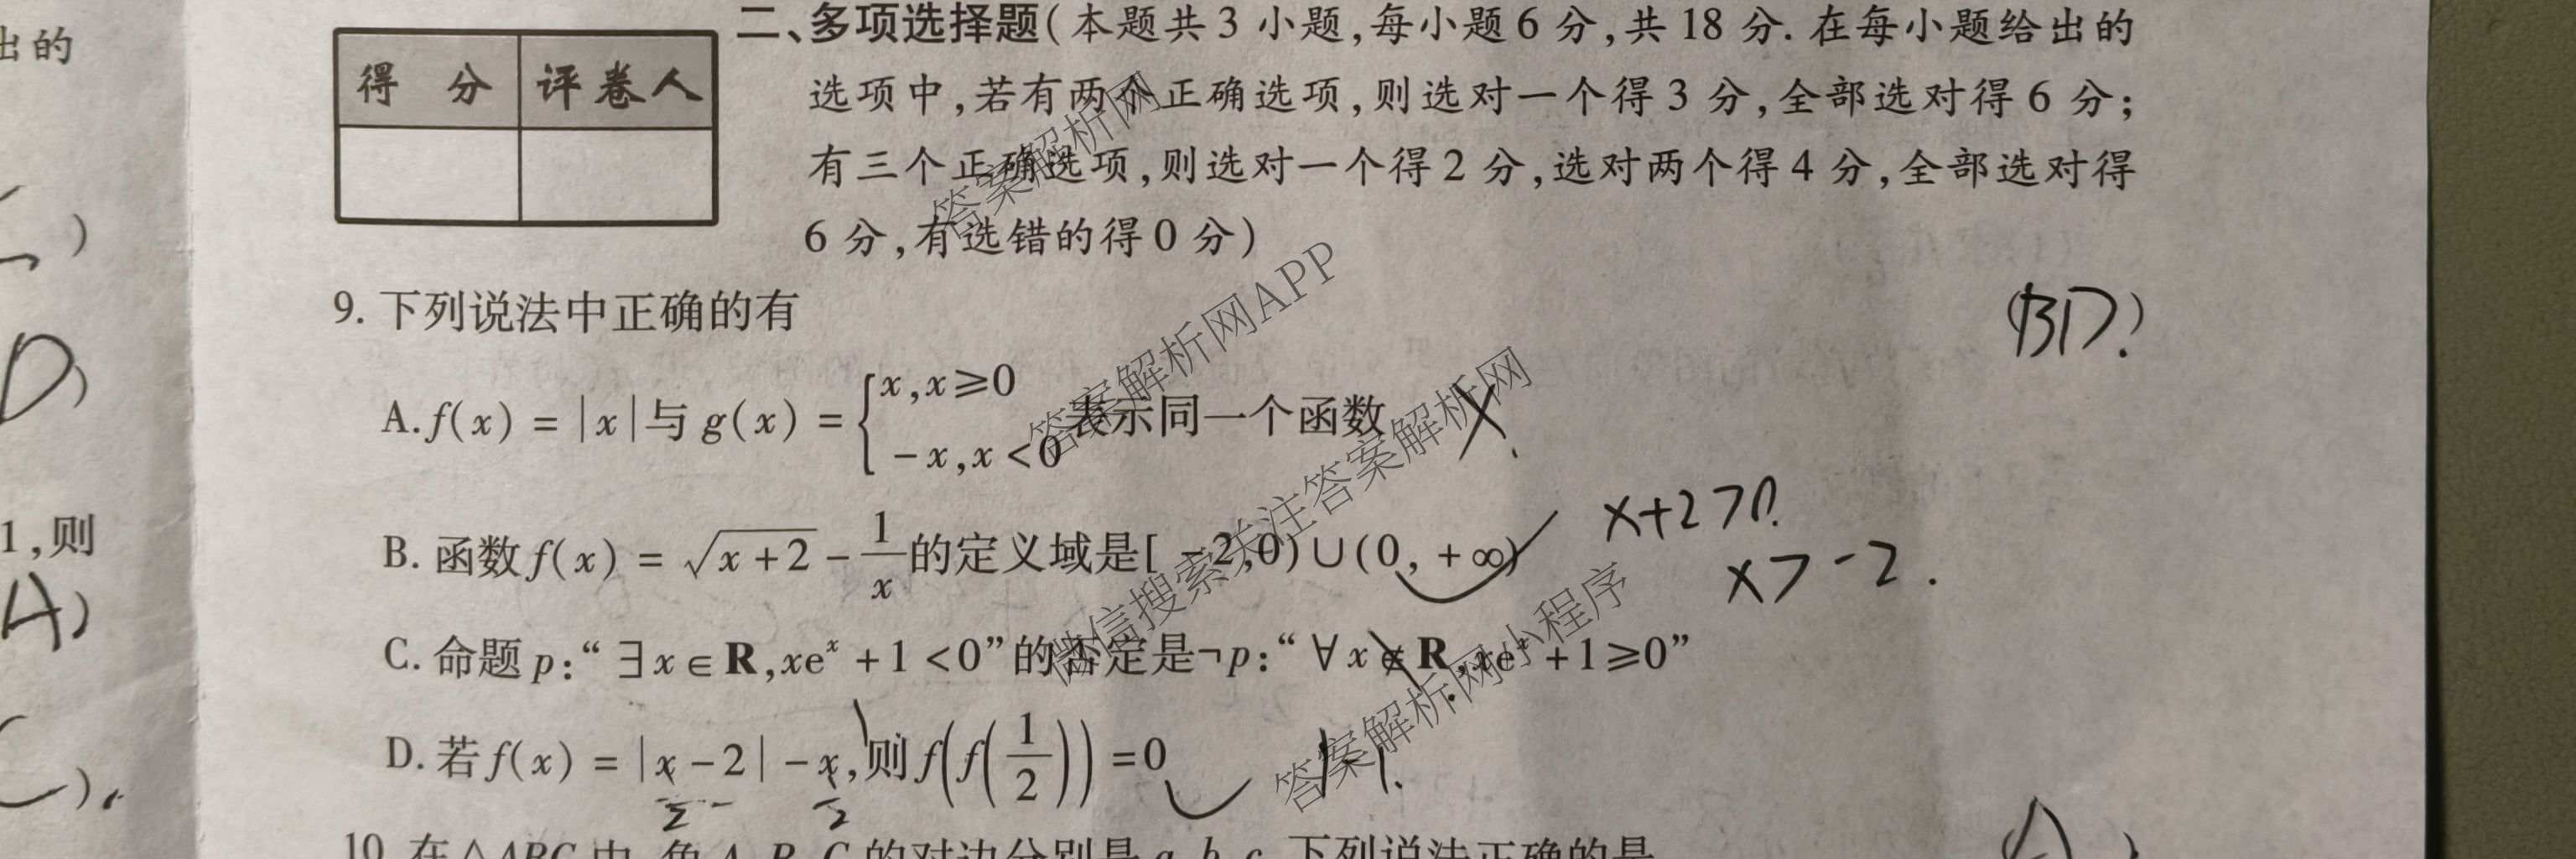 出的
二、多项选择题(本题共3小题,每小题6分,共18分.在每小题给出的
得 分 评卷人
选项中,若有两个正确选项,则选对一个得3分,全部选对得6分;
有三个正确选项,则选对一个得2分,选对两个得4分,全部选对得
6分,有选错的得0分)
9.下列说法中正确的有 (BD.)
D)
A.f(x)=|x|与g(x)={x,x≥0 -x,x<0 表示同一个函数 X.
x+2>0.
1,则
B.函数f(x)=√(x+2)-1/x的定义域是[-2,0)∪(0,+∞)
x>-2.
A)
C.命题p:“∃x∈R,xeˣ+1<0”的否定是¬p:“∀x∉R,xeˣ+1≥0”
D.若f(x)=|x-2|-x,则f(f(1/2))=0
10.在△ABC中,角A,B,C的对边分别是a,b,c,下列说法正确的是
答案解析网
答案解析网APP
微信搜索关注答案解析网
答案解析网小程序